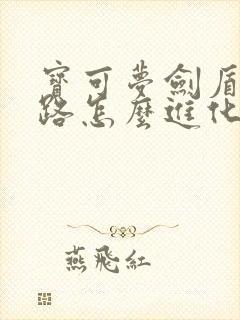 寶可夢劍盾
路怎麼進化
燕飛紅